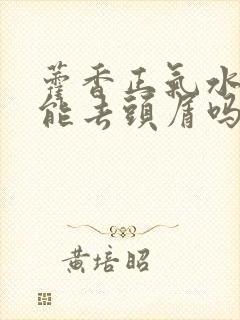 藿香正氣水
能去頭屑吗
黄培昭